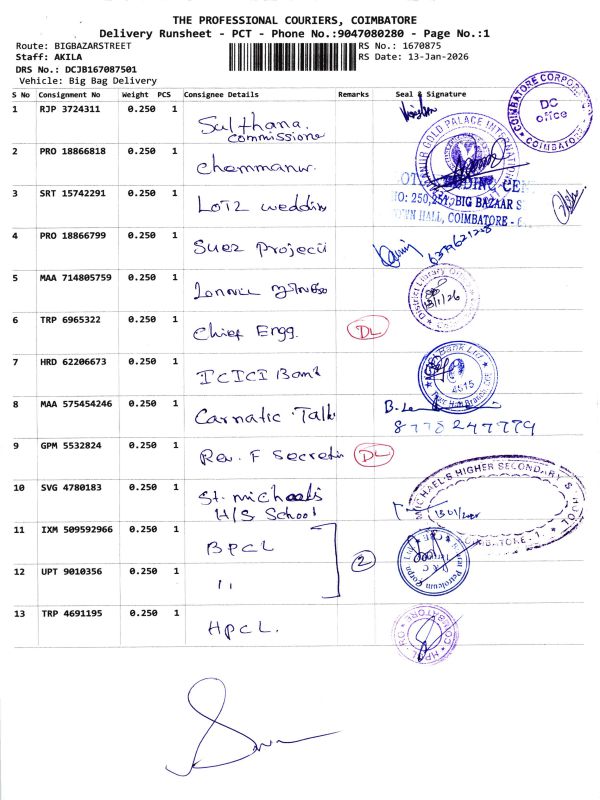 THE PROFESSIONAL COURIERS, COIMBATORE
Delivery Runsheet - PCT - Phone No.:9047080280 - Page No.:1
Route: BIGBAZARSTREET
RS No.: 1670875
Staff: AKILA
RS Date: 13-Jan-2026
DRS No.: DCJB167087501
Vehicle: Big Bag Delivery
S No Consignment No Weight PCS Consignee Details Remarks Seal & Signature
1 RJP 3724311 0.250 1 Sulthana
commissione
COIMBATORE CORPORAT
DC
office
COIMBATORE
2 PRO 18866818 0.250 1 Chemmanur.
GOLD PALACE INTERNATION
3 SRT 15742291 0.250 1 LOTZ wedding
WEDDING CEN
NO: 250,251, BIG BAZAAR S
TOWN HALL, COIMBATORE - 6
4 PRO 18866799 0.250 1 Suez Project
5 MAA 714805759 0.250 1
District Library
13/1/26
6 TRP 6965322 0.250 1 Chief Engg. DL
7 HRD 62206673 0.250 1 ICICI Bank
Bank Ltd
4515
8 MAA 575454246 0.250 1 Carnatic Talk
8778247779
9 GPM 5532824 0.250 1 Rev. F Secretin DL
10 SVG 4780183 0.250 1 St. michaels
H/S School
MICHAEL'S HIGHER SECONDARY SCHOOL
COIMBATORE - 1.
11 IXM 509592966 0.250 1 BPCL
2
Petroleum
12 UPT 9010356 0.250 1 11
13 TRP 4691195 0.250 1 HPCL.
HPCL